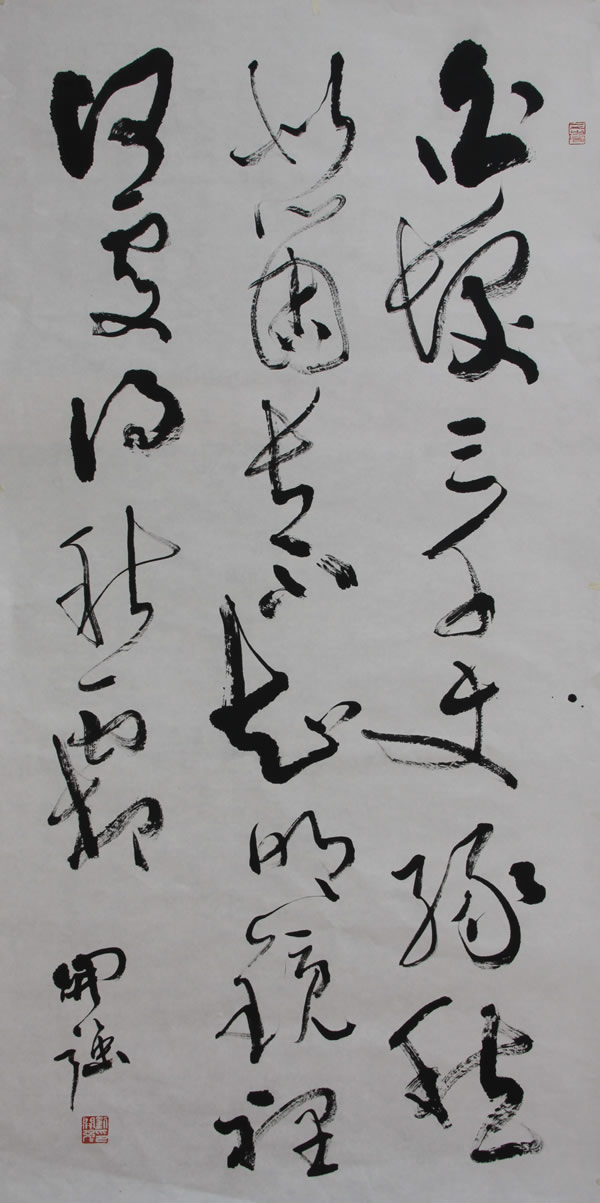 白髮三千丈緣愁
似箇長不知明鏡裡
何處得秋霜
開強